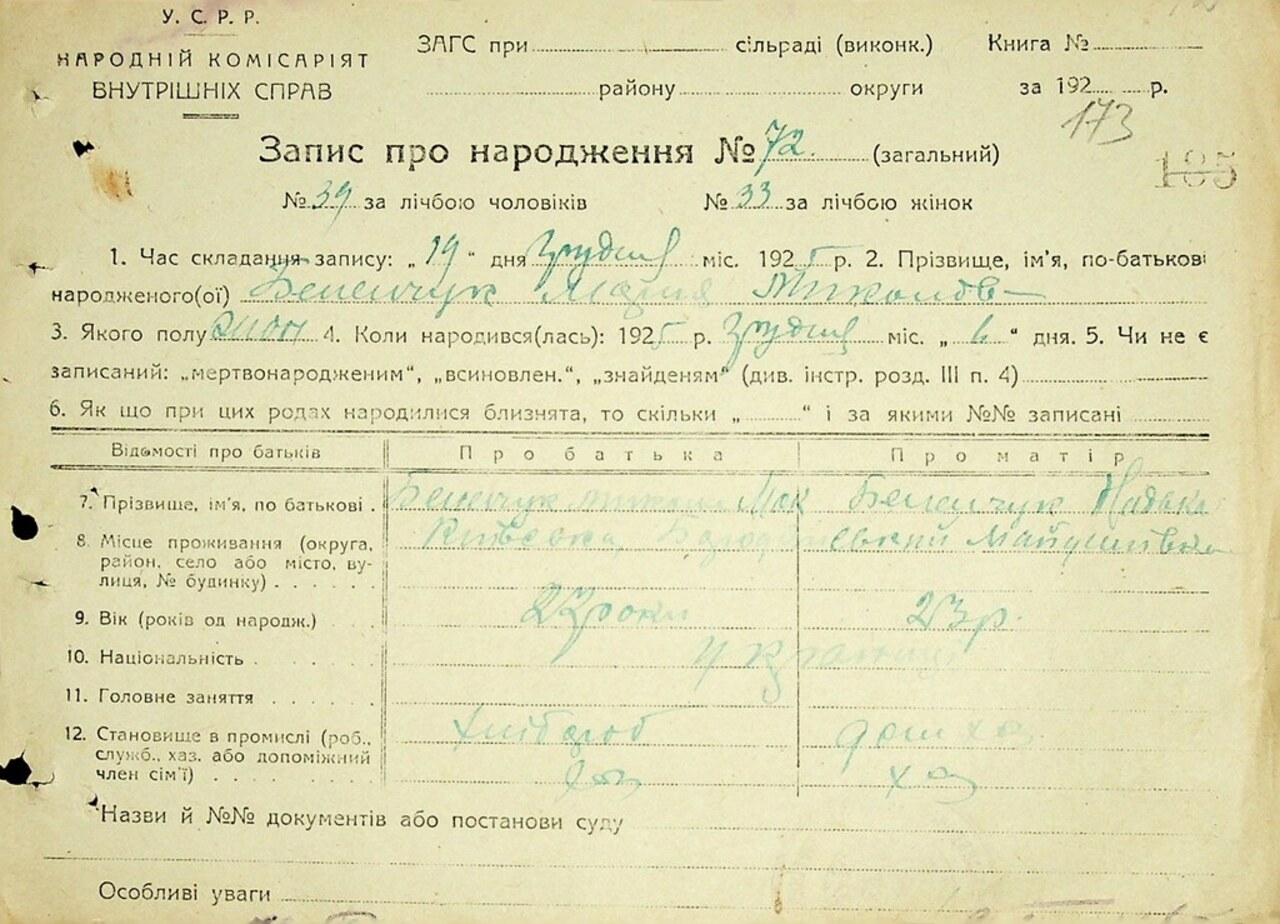 У. С. Р. Р.
НАРОДНІЙ КОМІСАРІЯТ
ВНУТРІШНІХ СПРАВ
ЗАГС при сільраді (виконк.) Книга №
району округи за 192 р.
173
Запис про народження № 72. (загальний)
185
№ 39 за лічбою чоловіків № 33 за лічбою жінок
1. Час складання запису: „ 19 “ дня Грудня міс. 1925 р. 2. Прізвище, ім'я, по-батькові
народженого(ої) Беленчук Мария Миколов
3. Якого полу жін 4. Коли народився(лась): 1925 р. Грудня міс. „ 6 “ дня. 5. Чи не є
записаний: „мертвонародженим“, „всиновлен.“, „знайденям“ (див. інстр. розд. III п. 4)
6. Як що при цих родах народилися близнята, то скільки „ “ і за якими №№ записані
Відомості про батьків Про батька Про матір
7. Прізвище, ім'я, по батькові . Беленчук Мак Беленчук
8. Місце проживання (округа,
район, село або місто, ву-
лиця, № будинку) . . . . . .
9. Вік (років од народж.) 22 роки 23 р.
10. Національність
11. Головне заняття хлібороб дом ха
12. Становище в промислі (роб.,
служб., хаз. або допоміжний
член сім'ї)
Назви й №№ документів або постанови суду
Особливі уваги